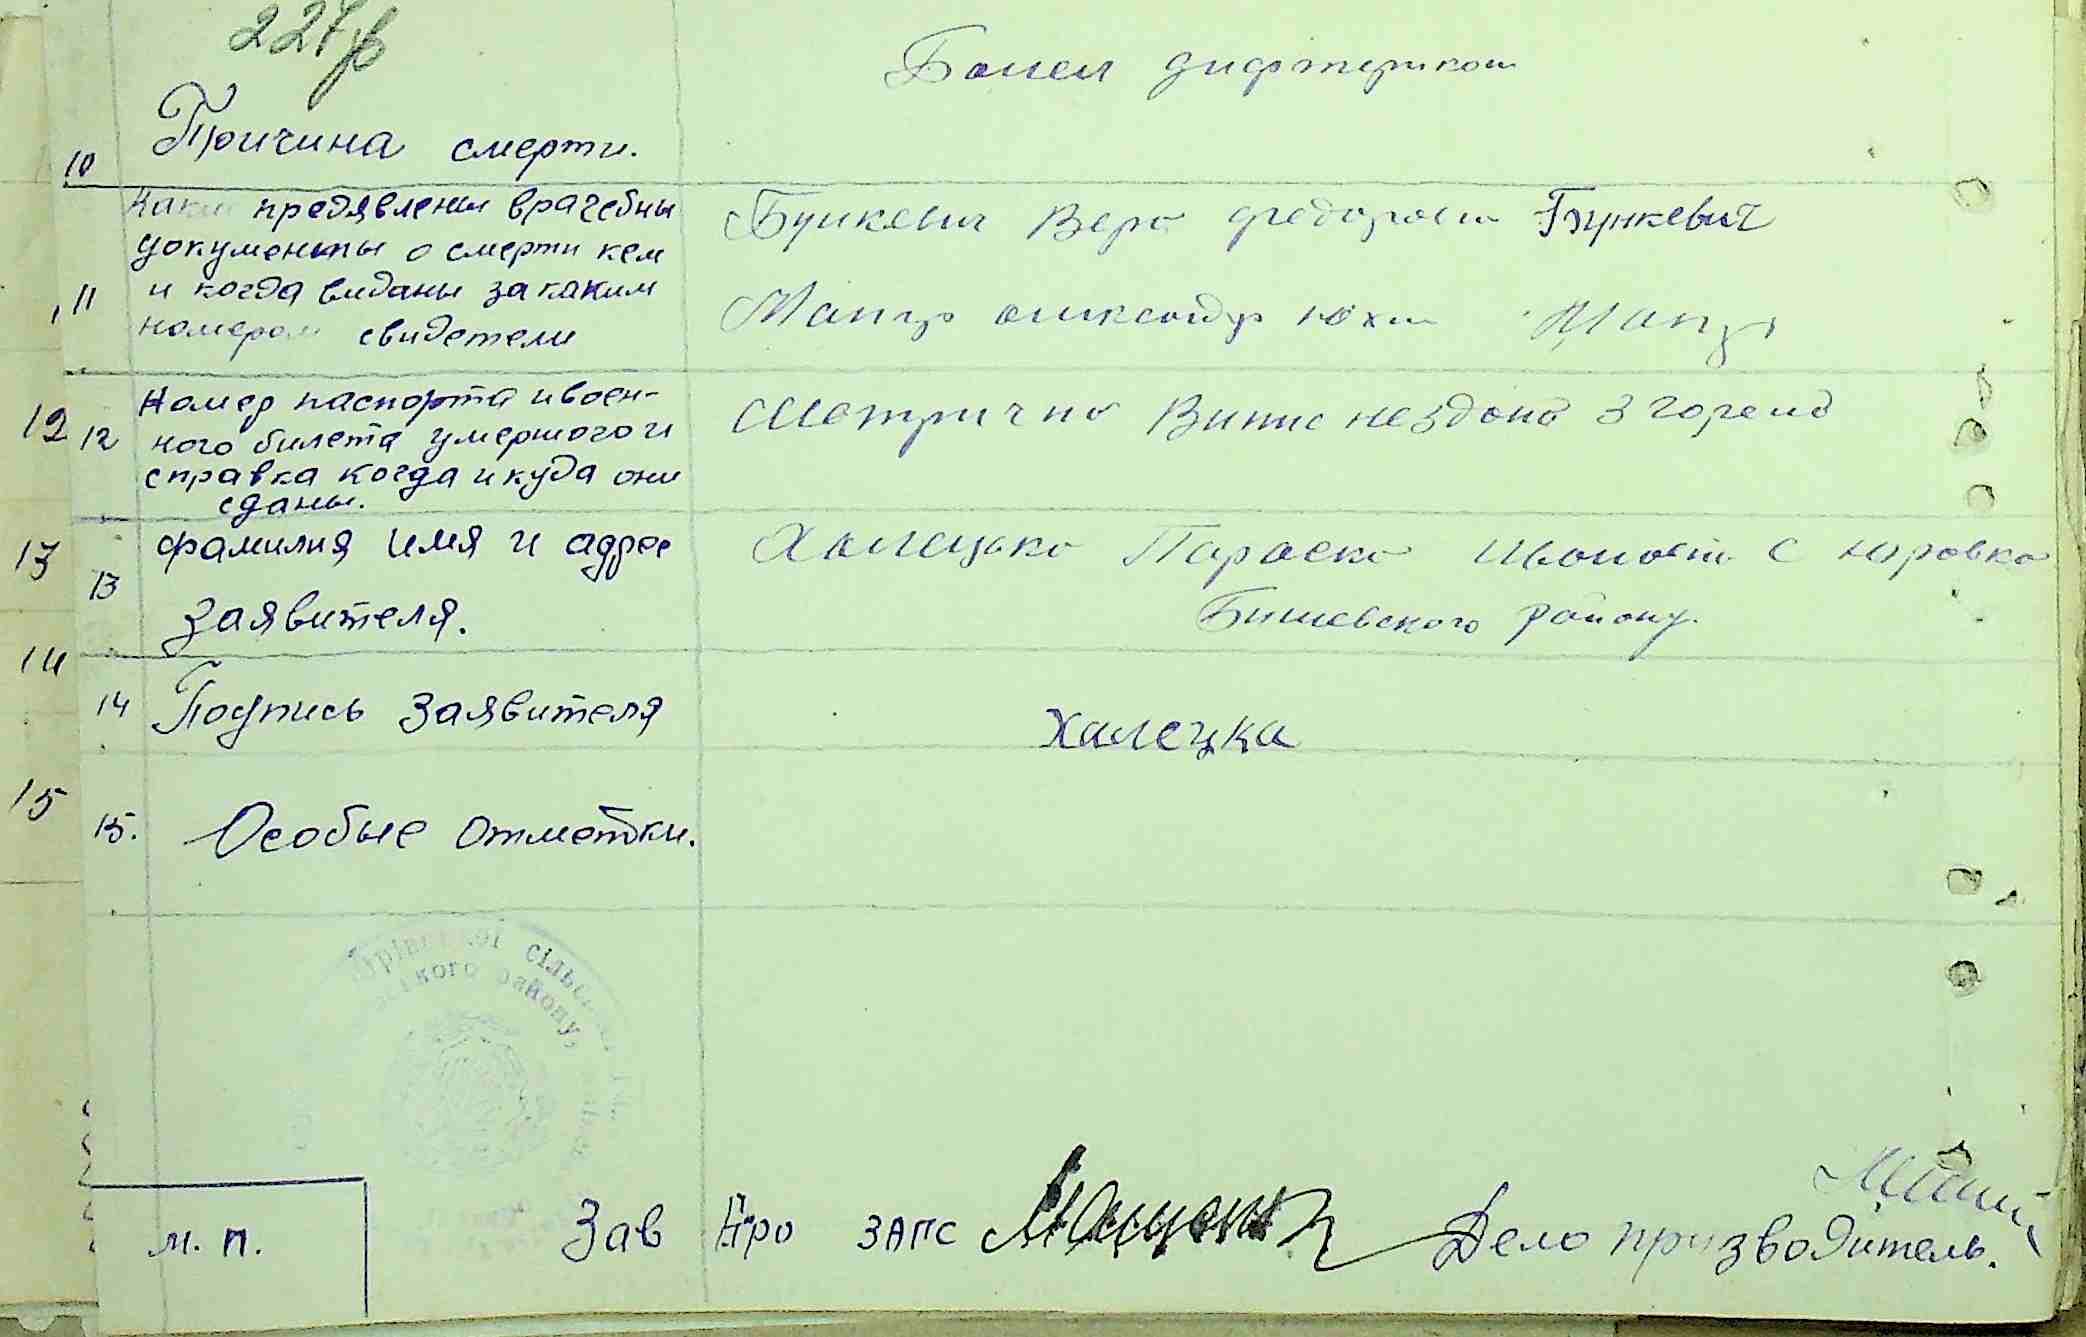 Болел дифтериком
10 Причина смерти.
Каки предявлени врачебны
документы о смерти кем
11 и когда виданы за каким
номером свидетели
Бункевич Вера федоровн Бункевич
Мапур олександр юхим Мапур
12 12 Номер паспорта и воен-
ного билета умершого и
справка когда и куда они
сданы.
Метрична Випис нездана згорела
13 13 фамилия имя и адрес
заявителя.
Халецька Параска Ивановна с юровка
Бишевского району.
14 14 Подпись заявителя
Халецка
15 15. Особые отметки.
сільс
кого району
м. п.
Зав Бро ЗАГС
Дело призводитель.